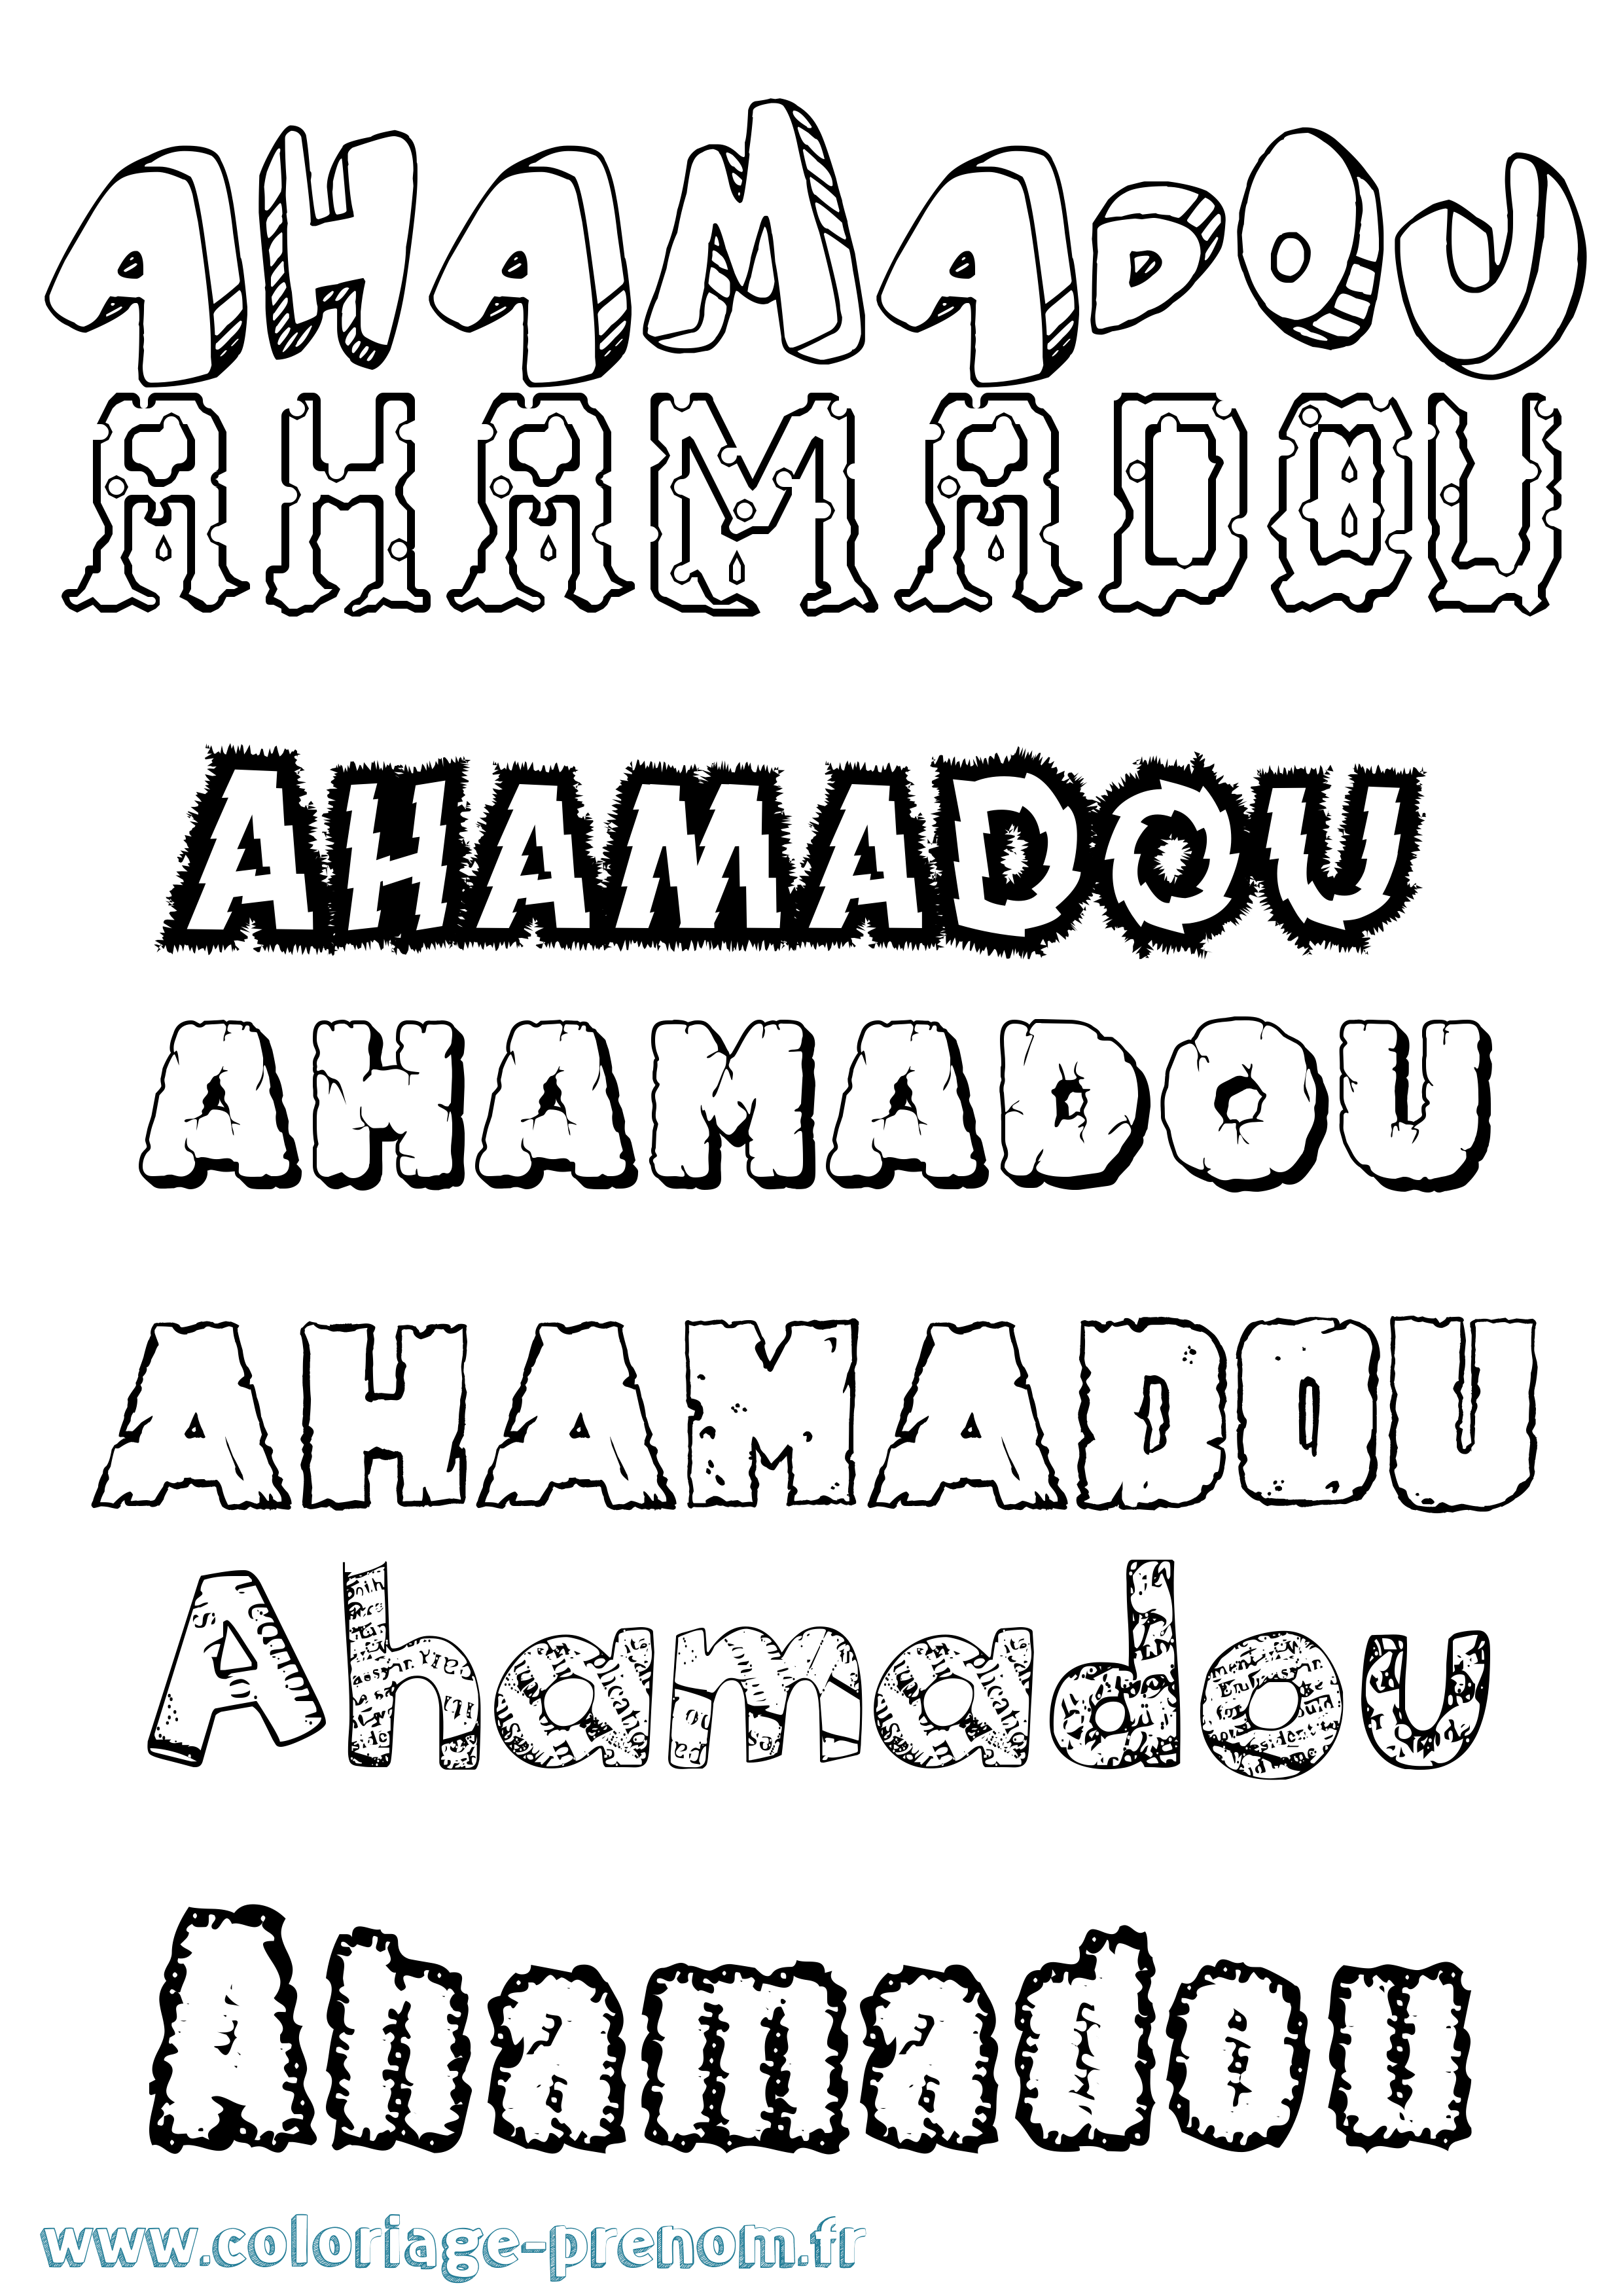 AHAMADOU
AHAMADOU
AHAMADOU
AHAMADOU
AHAMADOU
Ahamadou
Ahamadou
www.coloriage-prenom.fr